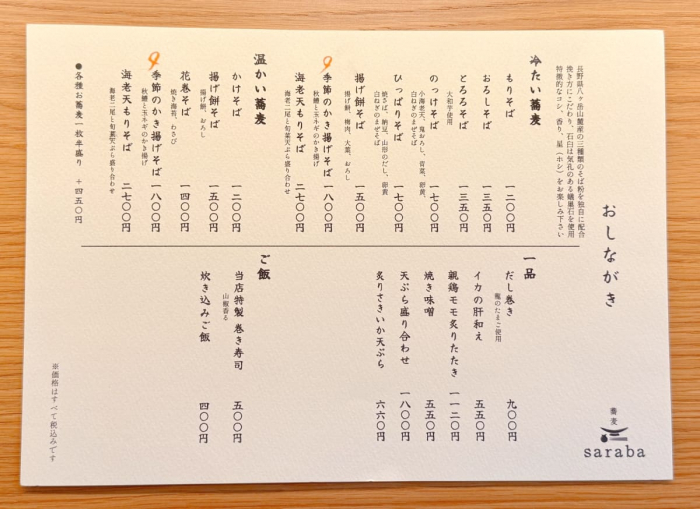 おしながき
長野県八ヶ岳山麓産の三種類のそば粉を独自に配合
挽き方にこだわり、石臼は気孔のある蟻巣石を使用
特徴的なコシ、香り、星（ホシ）をお楽しみ下さい
冷たい蕎麦
もりそば 一二〇〇円
おろしそば 一三五〇円
とろろそば 一三五〇円
大和芋使用
のっけそば 一七〇〇円
小海老天、鬼おろし、青菜、卵黄、
白ねぎのまぜそば
ひっぱりそば 一七〇〇円
焼さば、納豆、山形のだし、卵黄
白ねぎのまぜそば
揚げ餅そば 一五〇〇円
揚げ餅、梅肉、大葉、おろし
季節のかき揚げそば 一八〇〇円
秋鱧と玉ネギのかき揚げ
海老天もりそば 二七〇〇円
海老二尾と旬菜天ぷら盛り合わせ
温かい蕎麦
かけそば 一二〇〇円
揚げ餅そば 一五〇〇円
揚げ餅、おろし
花巻そば 一四〇〇円
焼き海苔、わさび
季節のかき揚げそば 一八〇〇円
秋鱧と玉ネギのかき揚げ
海老天もりそば 二七〇〇円
海老二尾と旬菜天ぷら盛り合わせ
●各種お蕎麦一枚半盛り ＋四五〇円
一品
だし巻き 九〇〇円
龍のたまご使用
イカの肝和え 五五〇円
親鶏モモ炙りたたき 一一二〇円
焼き味噌 五五〇円
天ぷら盛り合わせ 一八〇〇円
炙りさきいか天ぷら 六六〇円
ご飯
当店特製 巻き寿司 五〇〇円
山椒香る
炊き込みご飯 四〇〇円
※価格はすべて税込みです
蕎麦
saraba